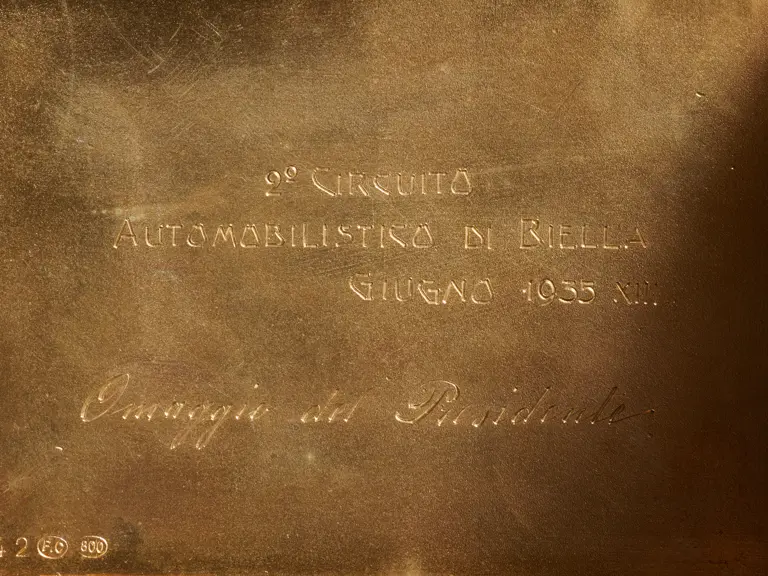 2º CIRCUITO
AUTOMOBILISTICO DI BIELLA
GIUGNO 1935 XIII
Omaggio del Presidente
42 F.C 800